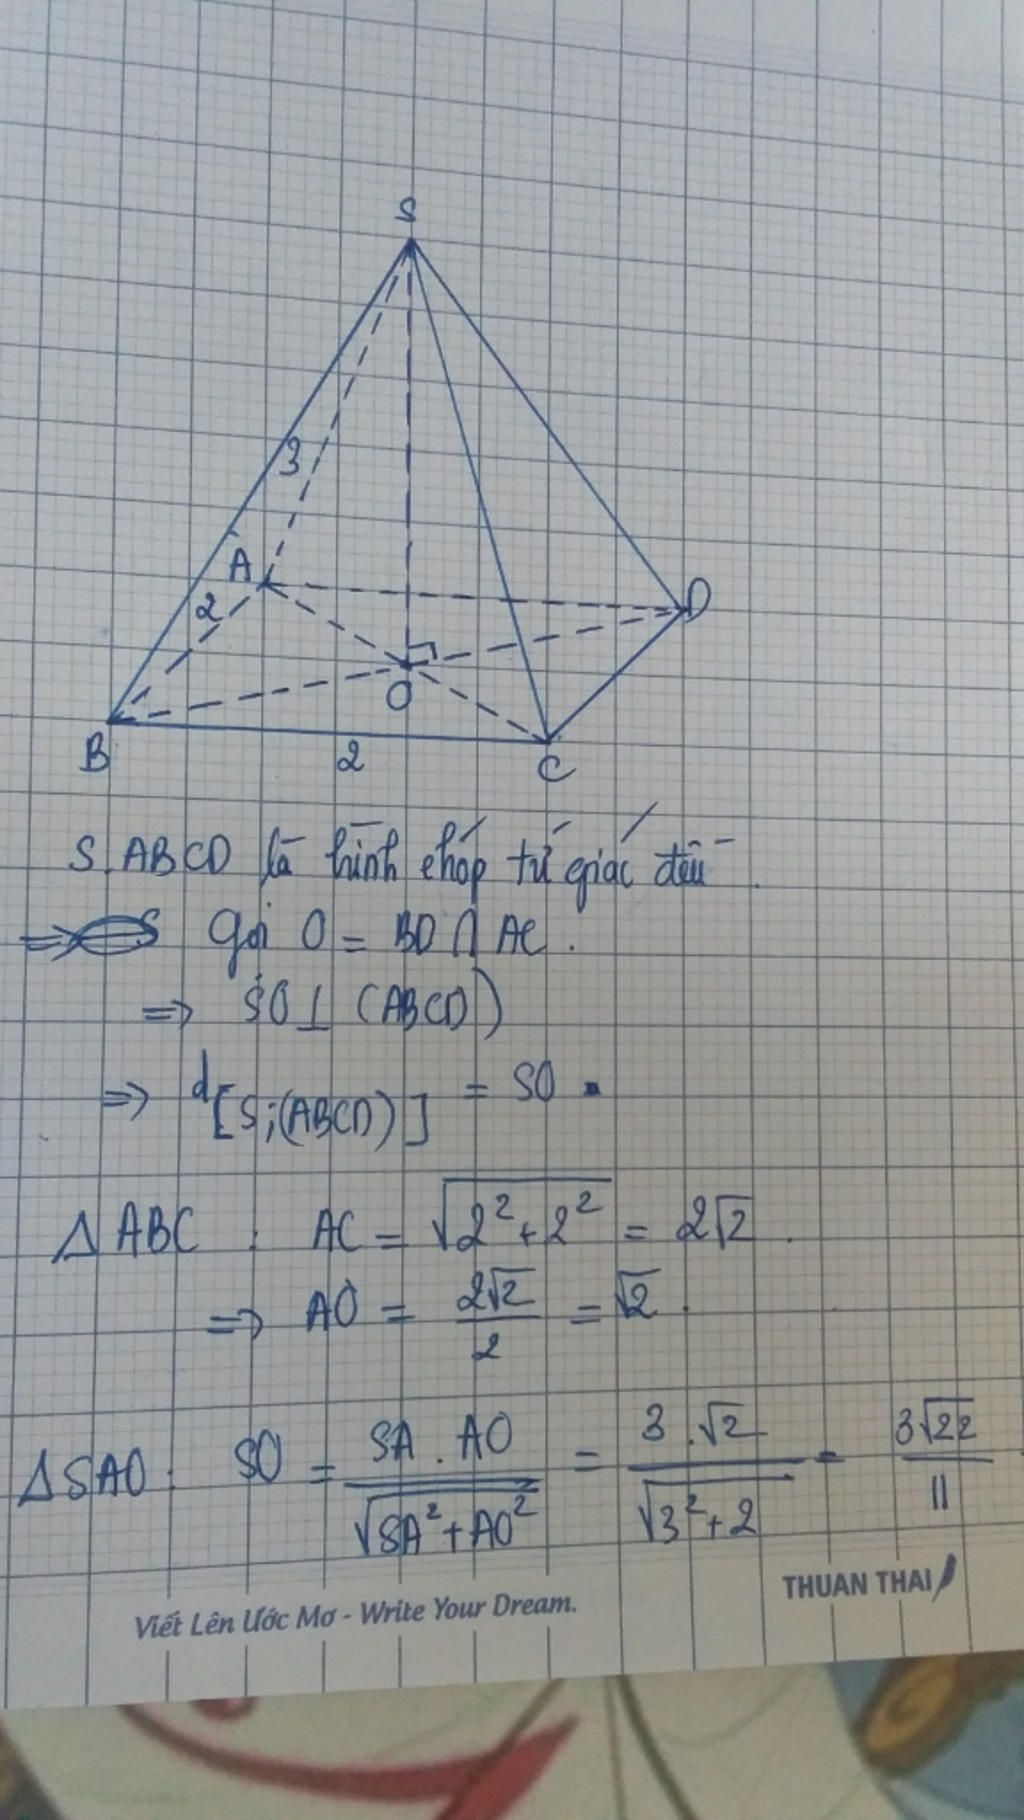 S
3
A
2
D
O
B
2
C
S.ABCD là hình chóp tứ giác đều.
Gọi O = BD ∩ AC.
=> SO ⊥ (ABCD)
=> d[S;(ABCD)] = SO.
Δ ABC : AC = √(2² + 2²) = 2√2.
=> AO = 2√2/2 = √2.
Δ SAO : SO = SA . AO/√(SA² + AO²) = 3 . √2/√(3² + 2) = 3√22/11
Viết Lên Ước Mơ - Write Your Dream.
THUAN THAI